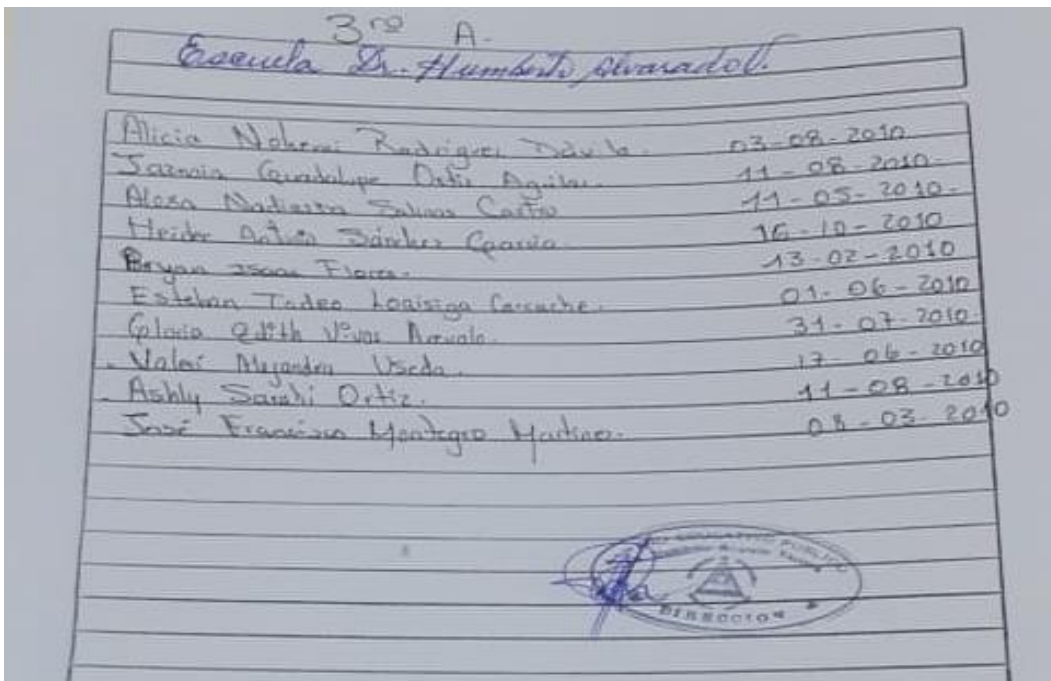 3ro A.
Escuela Dr. Humberto Alvarado V.
Alicia Nohemi Rodriguez Dávila. 03-08-2010
Jazmin Guadalupe Ortiz Aguilar. 11-08-2010-
Alexa Salinas Castro 11-05-2010-
Heider Antonio Sánchez García. 16-10-2010
Bryan Isaac Flores. 13-02-2010
Esteban Tadeo Loaisiga Carcache. 01-06-2010
Gloria Edith Vivas Arevalo. 31-07-2010.
Valeri Alejandra Useda. 17-06-2010
Ashly Sarahi Ortiz. 11-08-2010
José Francisco Montegro Martinez. 08-03-2010
EDUCATIVO PUBLICO
DIRECCION